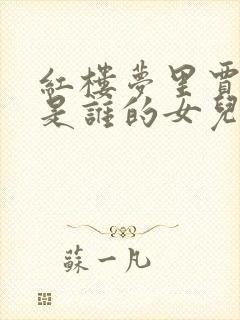 紅樓夢里賈
是誰的女兒
蘇一凡